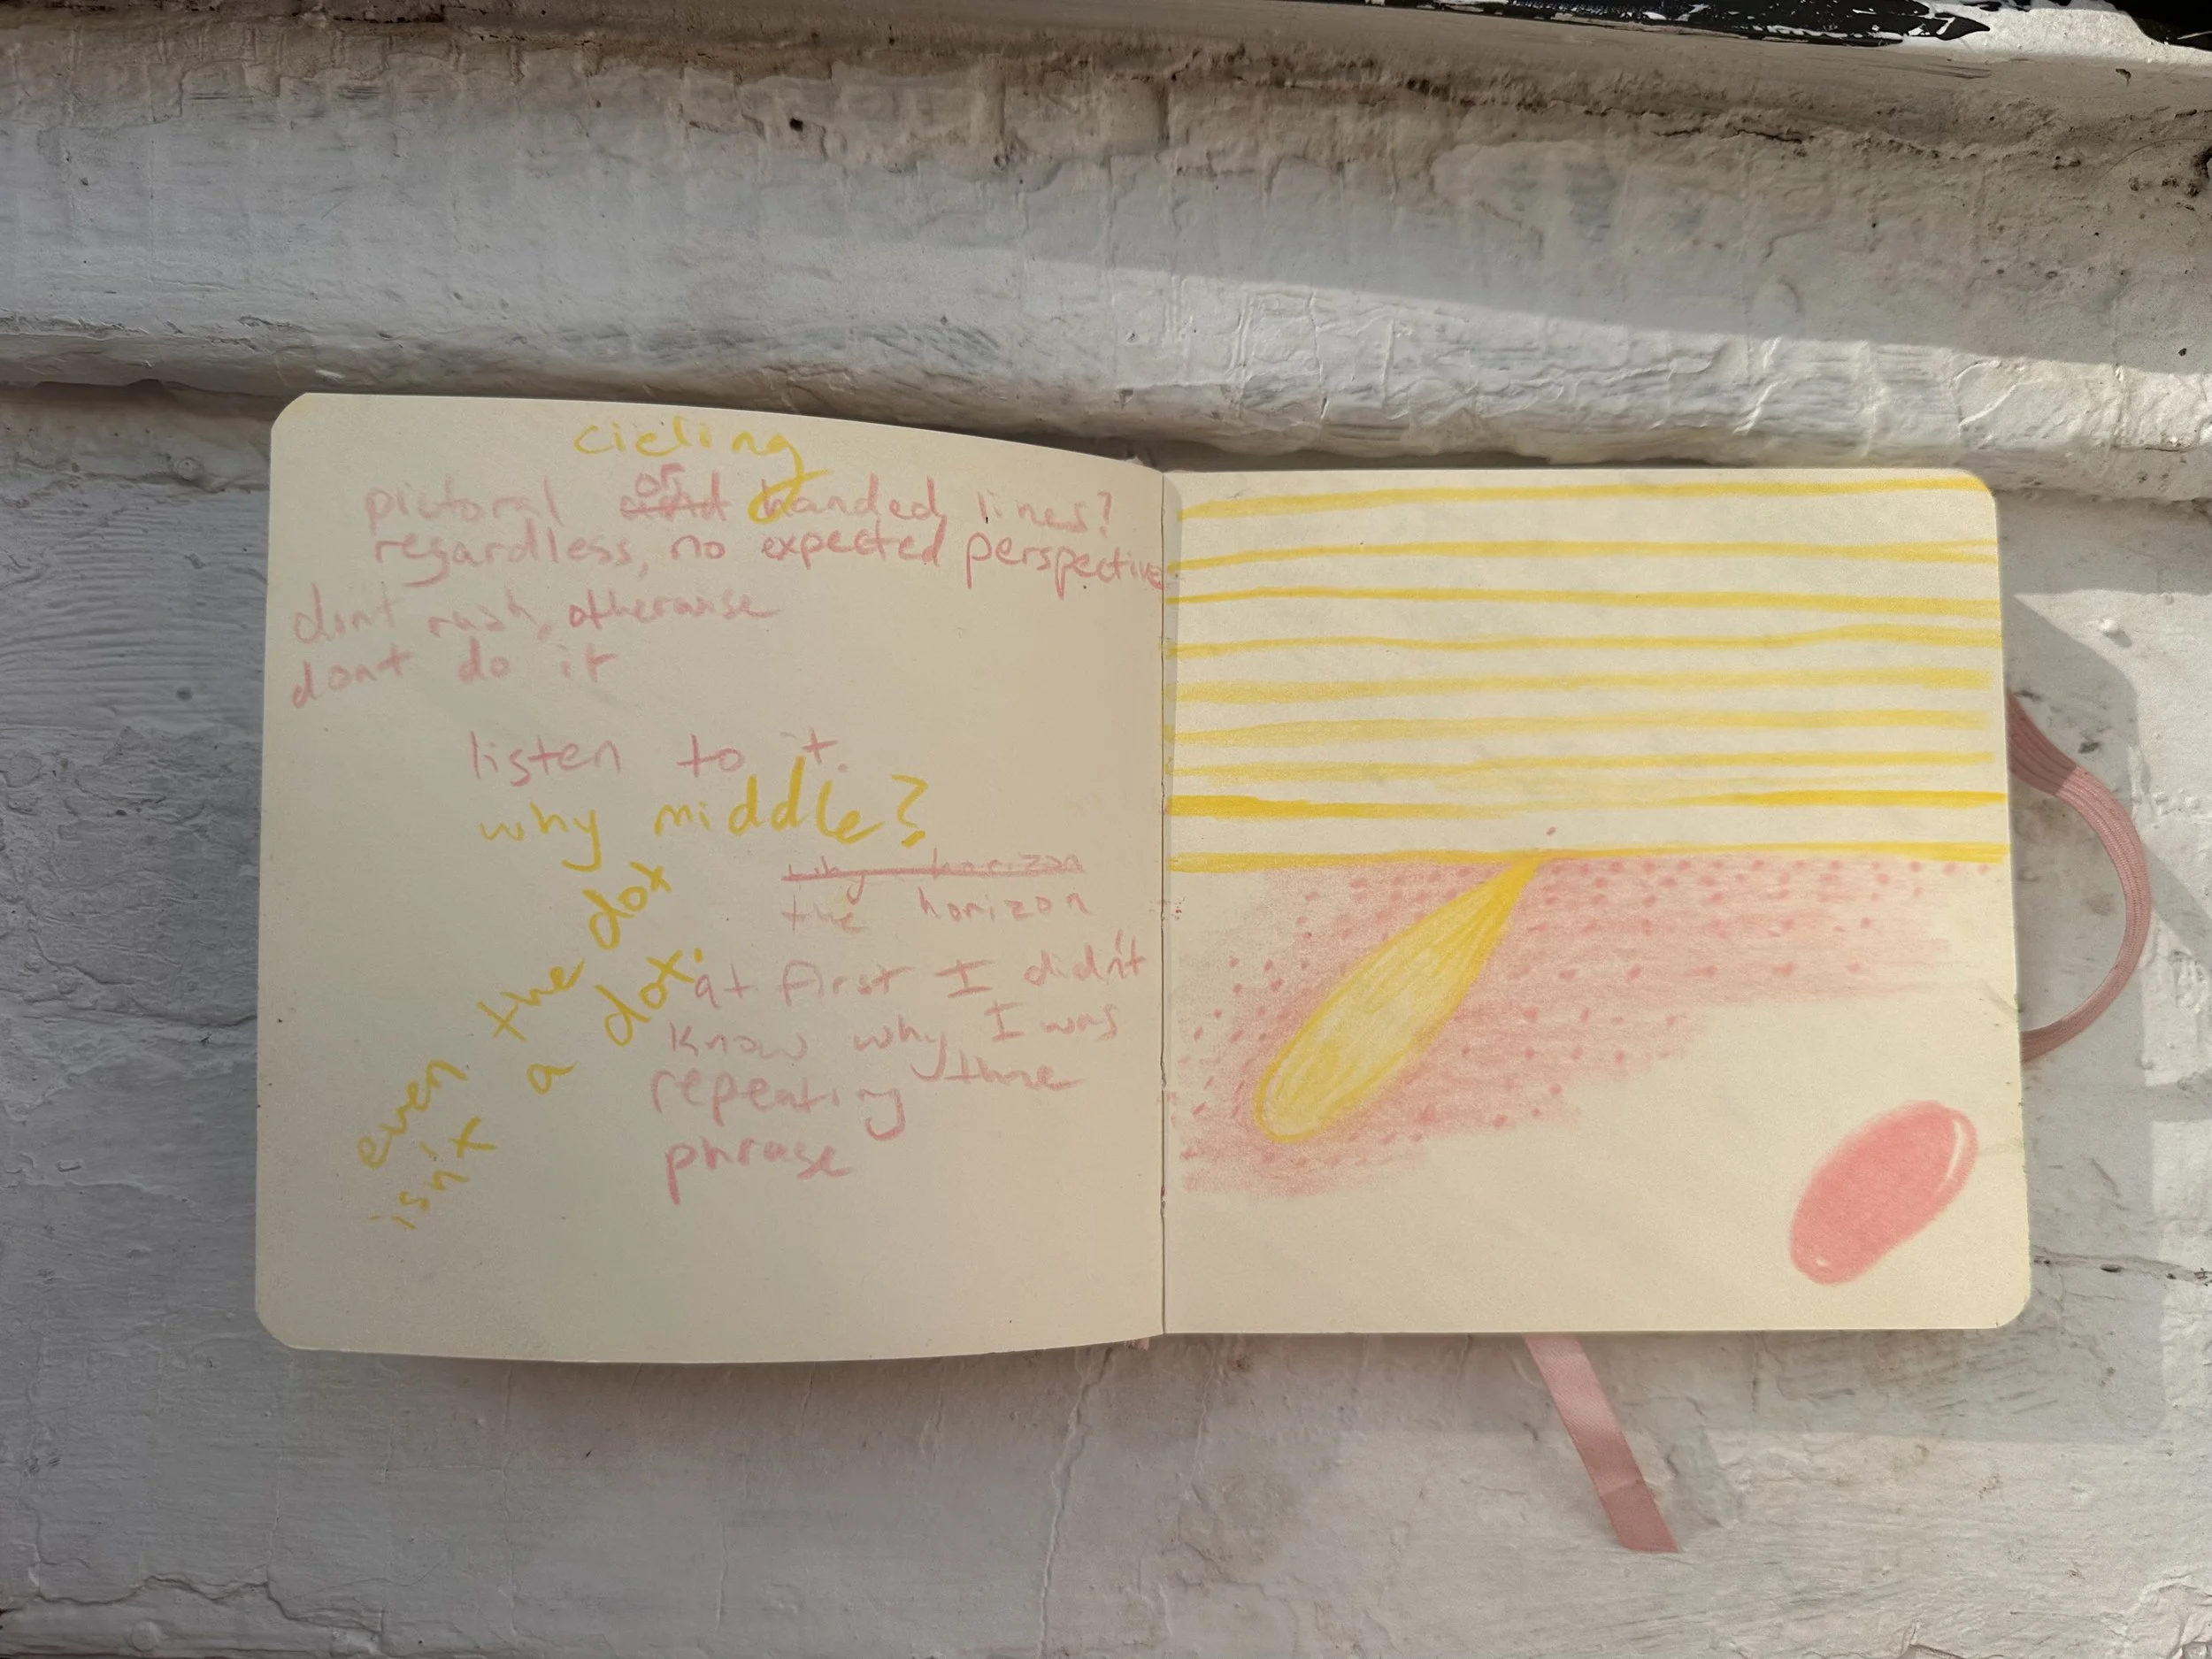 cieling
pictoral or and handed lines?
regardless, no expected perspective
dont rush, otherwise
dont do it
listen to it.
why middle?
why horizon
the horizon
even the dot
isn't a dot.
at first I didn't
know why I was
repeating thme
phrase